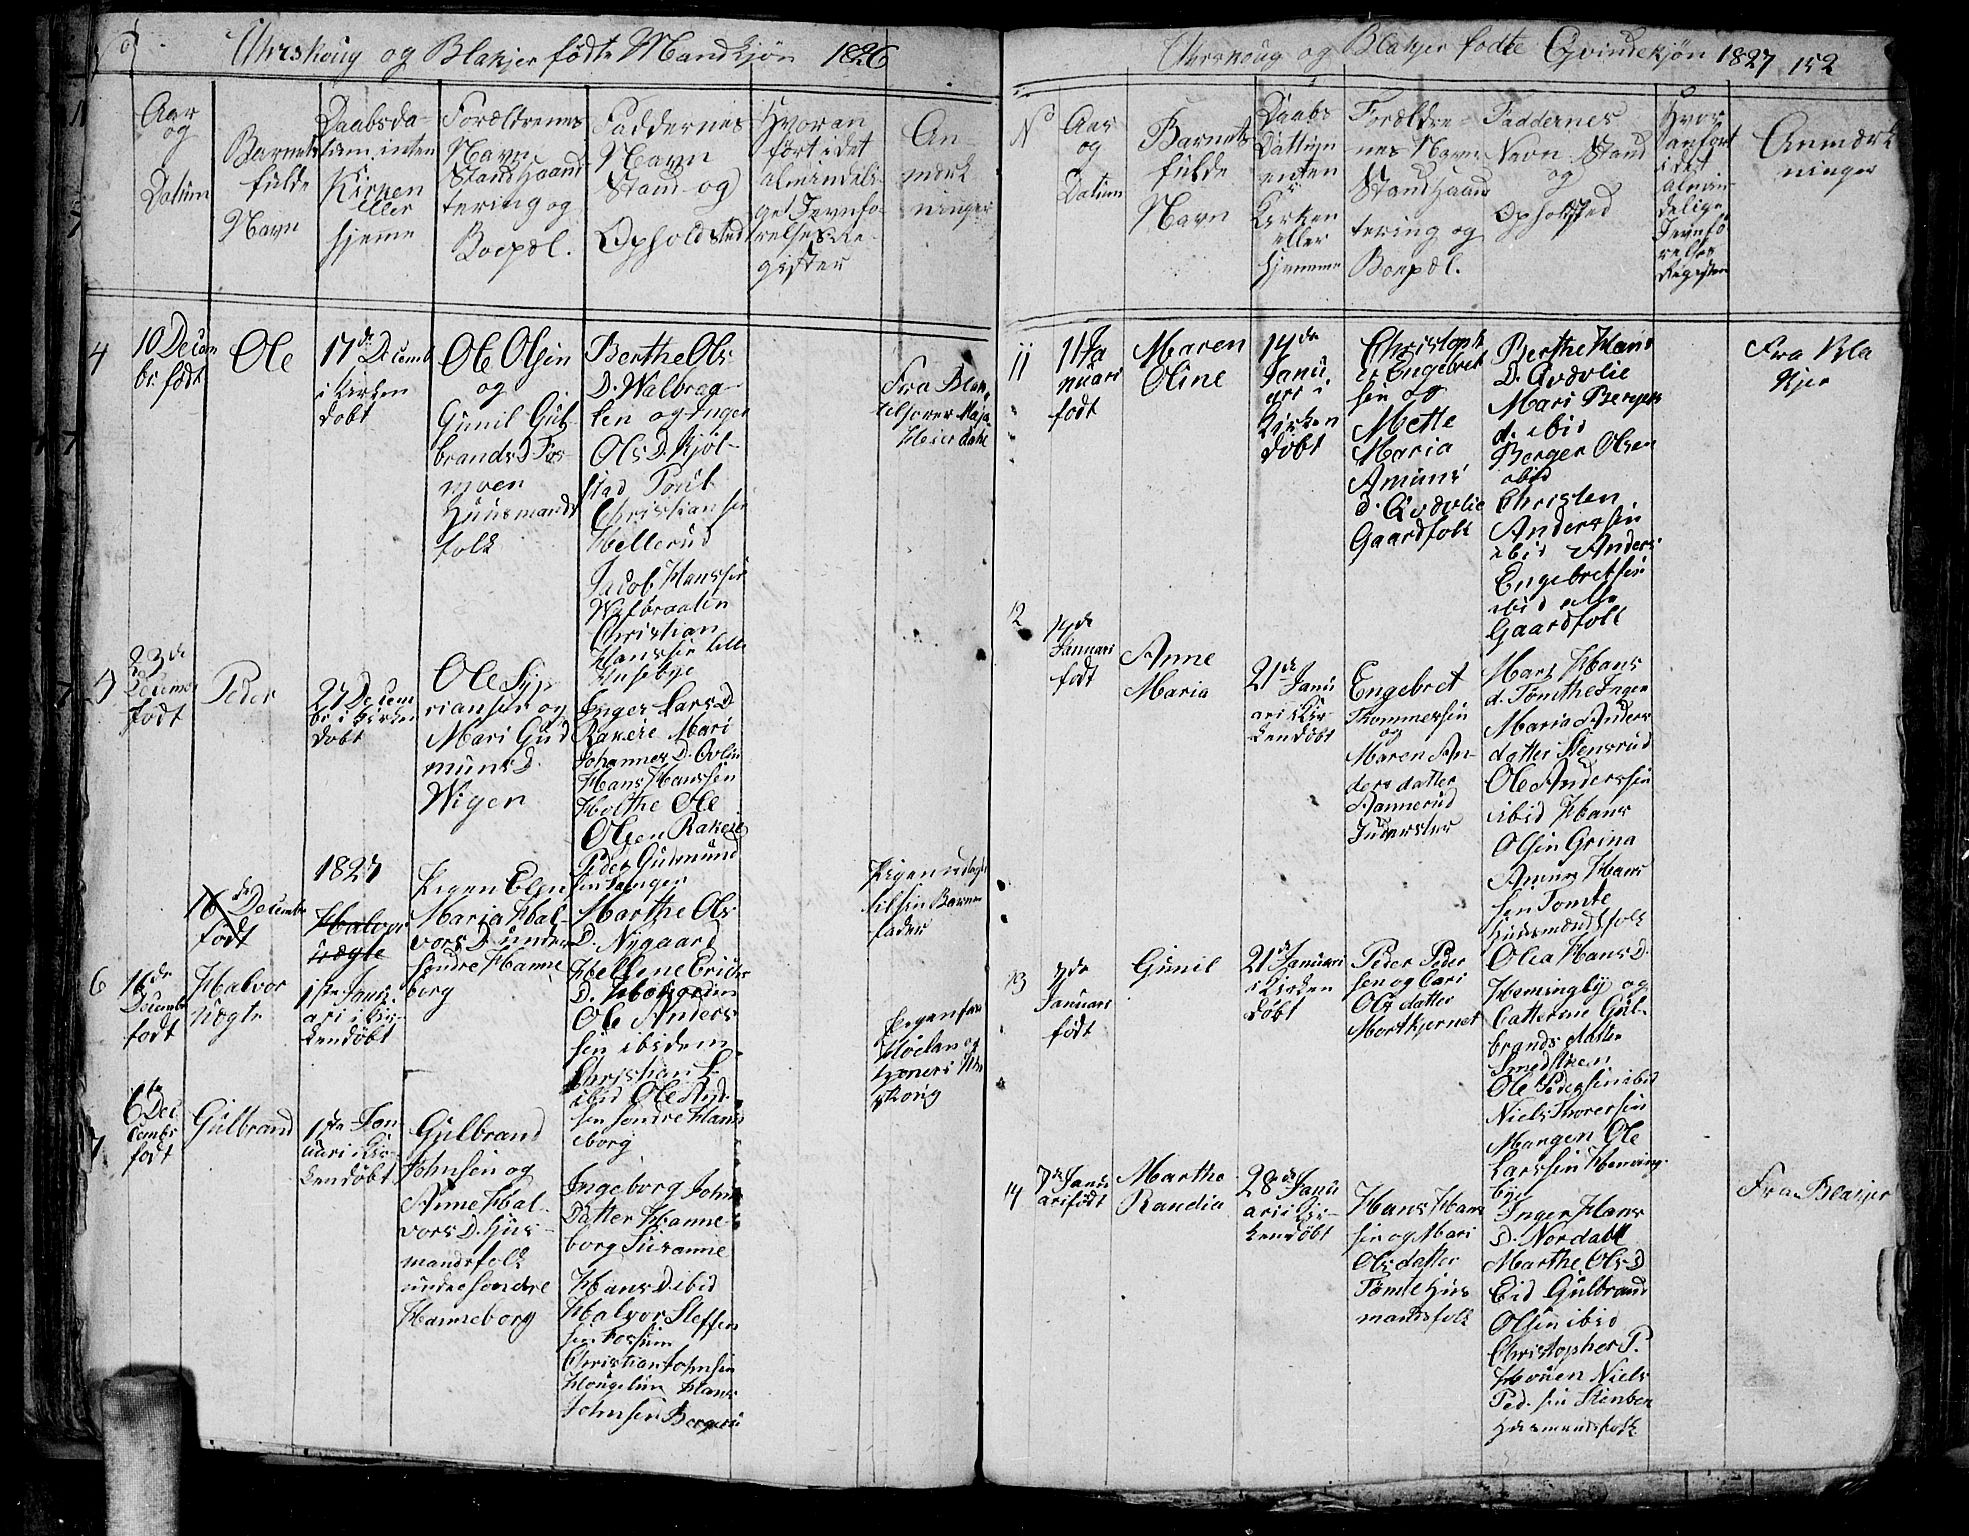 No
Uhrskoug og Blakjer fødte Mandkjøn 1826
Aar
og
Datum
Barnets
fulde
Navn
Daabsda-
tum enten
Kirken
eller
hjemme
Forældrenes
Navn
Stand Haand
tering og
Boepæl.
Faddernes
Navn
Stand og
Opholdsted
Hvor an
ført i det
almindeli-
ge Jevnfø-
relses-Re-
gister
An-
mærk
ninger
4
10 Decem
br født
Ole
17de Decemb
i Kirken
døbt
Ole Olsen
og
Gunil Gul-
brandsD. Fos
moen
Huusmands
folk
Berthe Ols
D. Walbrek-
ken og Inger
Ols D. Kjøl-
stad Poul
Christiansen
Hellerud
Jacob Hanssen
Christian
Hanssen lille
Husebye
5
23de
Decembr
født
Peder
27 Decem
br i Kirken
døbt
Ole Syp
riansen og
Mari Gud
munsD.
Wigen
Inger LarsD
Rakeie Mari
JohannesD.
Hans Hanssen
Holthe Ole
Olsen Rakeie
Peder Gudmund
sen
16de Decembr
født
1827
Halvor
uægte
6
16de
Decembr
født
Halvor
uægte
1ste Janu-
ari i Kir-
ken døbt
Pigen Elen
Maria Hal-
vorsD under
søndre Hanne
borg
Marthe Ols
D. Nygaard
Hellene Erichs
D.
Ole Anders
sen ibidem
Christian L
ibid Ole And
sen søndre Hann
eborg
Barne
fader
Høeland og
skoug
7
6te De
cembr
født
Gulbrand
1ste Jan
uari i Kir-
ken døbt
Gulbrand
Johnsen og
Anne Hal-
vorsD. Hus-
mandsfolk
under søndre
Hanneborg
Ingeborg John
Datter Hanne-
borg Susanne
HansD ibid
Halvor Steffen
sen Fossum
Christian Johnsen
Hougelun Hans
Johnsen Bergerud
Fra Blak
Uhrskoug og Blakjer fødte Qvindekjøn 1827 152
No
Aar
og
Datum
Barnets
fulde
Navn
Daabs
Dattum
enten
Kirken
eller
hjemme
Forældre
nes Navn
Stand Haan
tering og
Boepæl.
Faddernes
Navn Stand
og
Opholdsted
Hvor
anført
i det
almin
delige
Jevnfø
relses
Register
Anmærk
ninger
11
11 Ja
nuari
født
Maren
Oline
14de
Janu
ari i
Kirken
døbt
Christoph
er Engebret
sen og
Mette
Maria
Amuns
d. Qvævlie
Gaardfolk
Berthe Hans
D. Qvævlie
Mari Bergers
d. ibid
Berger Olsen
ibid
Christen
Anderssen
ibid Anders
Engebretsen
ibid alle
Gaardfolk
Fra Bla
kjer
12
14de
Januari
født
Anne
Maria
21de Janu
ari i Kir
ken døbt
Engebret
Thommessen
og
Maren An-
ders datter
Rannerud
Inderster
Mari Hans
d. Tomthe Inger
Maria Anders
datter Stensrud
Ole Anderssen
ibid Hans
Olsen Grina
Amun Hans
sen Tomte
Husmandsfolk
13
7de
Januari
født
Gunil
21de Januari
i Kirken
døbt
Peder Peder
sen og Cari
Ols datter
Mortkjernet
Olea HansD.
Hemingby og
Catterine Gul-
brands datter
Smedstuen
Ole Pedersen ibid
Niels Thoressen
Mangen Ole
Larssen Heming-
bye
14
7de Janu
ari født
Marthe
Randia
28de Janu
ari i Kir-
ken døbt
Hans Han
sen og Mari
Ols datter
Tomte Hus
mandsfolk
Inger Hans
D. Nordall
Marthe Ols D
Eid Gulbrand
Olsen ibid
Christopher P.
Houen Niels
Ped. sen Stenben
Husmandsfolk
Fra Blakjer